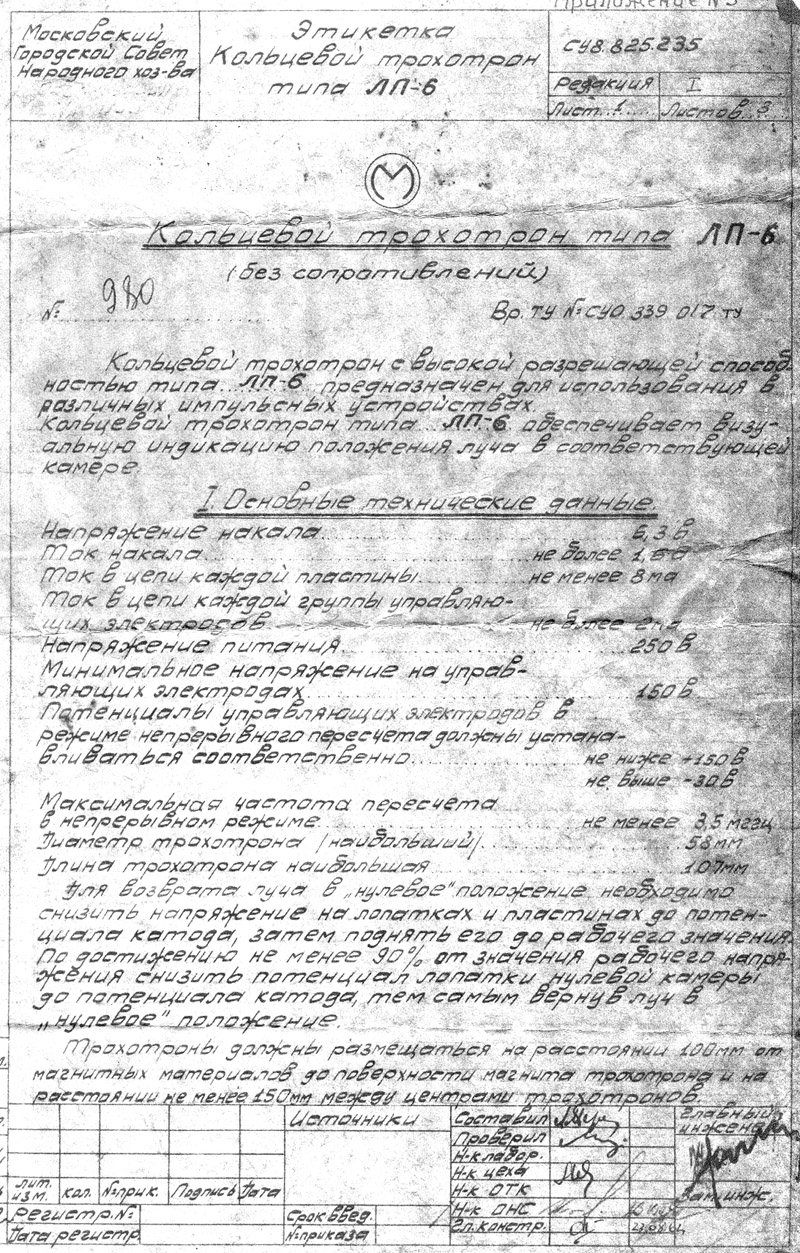 Приложение N 3
Московский
Городской Совет
Народного хоз-ва
Этикетка
Кольцевой трохотрон
типа ЛП-6
СУ8.825.235
Редакция I
Лист 1 Листов 3
М
Кольцевой трохотрон типа ЛП-6
(без сопротивлений)
№ 980
Вр. ТУ № СУ0.339 017 ТУ
Кольцевой трохотрон с высокой разрешающей способ-
ностью типа ЛП-6 предназначен для использования в
различных импульсных устройствах.
Кольцевой трохотрон типа ЛП-6 обеспечивает визу-
альную индикацию положения луча в соответствующей
камере.
I. Основные технические данные
Напряжение накала 6,3 в
Ток накала не более
Ток в цепи каждой пластины не менее 8 ма
Ток в цепи каждой группы управляю-
щих электродов не более 2 ма
Напряжение питания 250 в
Минимальное напряжение на управ-
ляющих электродах 150 в
Потенциалы управляющих электродов в
режиме непрерывного пересчета должны устана-
вливаться соответственно не ниже +150 в
не выше -30 в
Максимальная частота пересчета
в непрерывном режиме не менее 3,5 мггц
Диаметр трохотрона (наибольший) 58 мм
Длина трохотрона наибольшая 107 мм
Для возврата луча в „нулевое" положение необходимо
снизить напряжение на лопатках и пластинах до потен-
циала катода, затем поднять его до рабочего значения.
По достижению не менее 90% от значения рабочего напря-
жения снизить потенциал лопатки нулевой камеры
до потенциала катода, тем самым вернув луч в
„нулевое" положение.
Трохотроны должны размещаться на расстоянии 100 мм от
магнитных материалов до поверхности магнита трохотрона и на
расстоянии не менее 150 мм между центрами трохотронов.
Источники
Составил
Главный
инженер
Проверил
Н-к лабор.
Н-к цеха
Н-к ОТК
Н-к ОНС
Гл. констр.
Зам. инж.
лит.
изм. кол. № прик. Подпись Дата
Регистр. №
Дата регистр.
Срок введ.
№ приказа